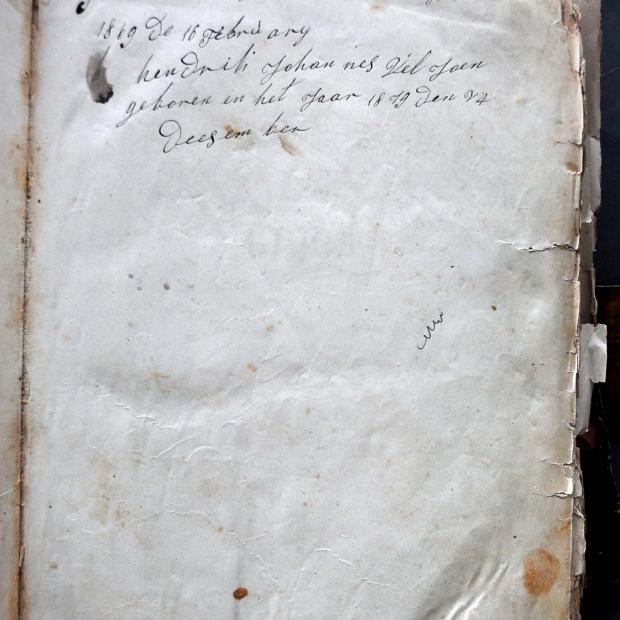 1869 De 16 Febrū ary
hendrik Johan nes Viel Joen
geboren en het Jaar 1879 Den 24
Deesem ber